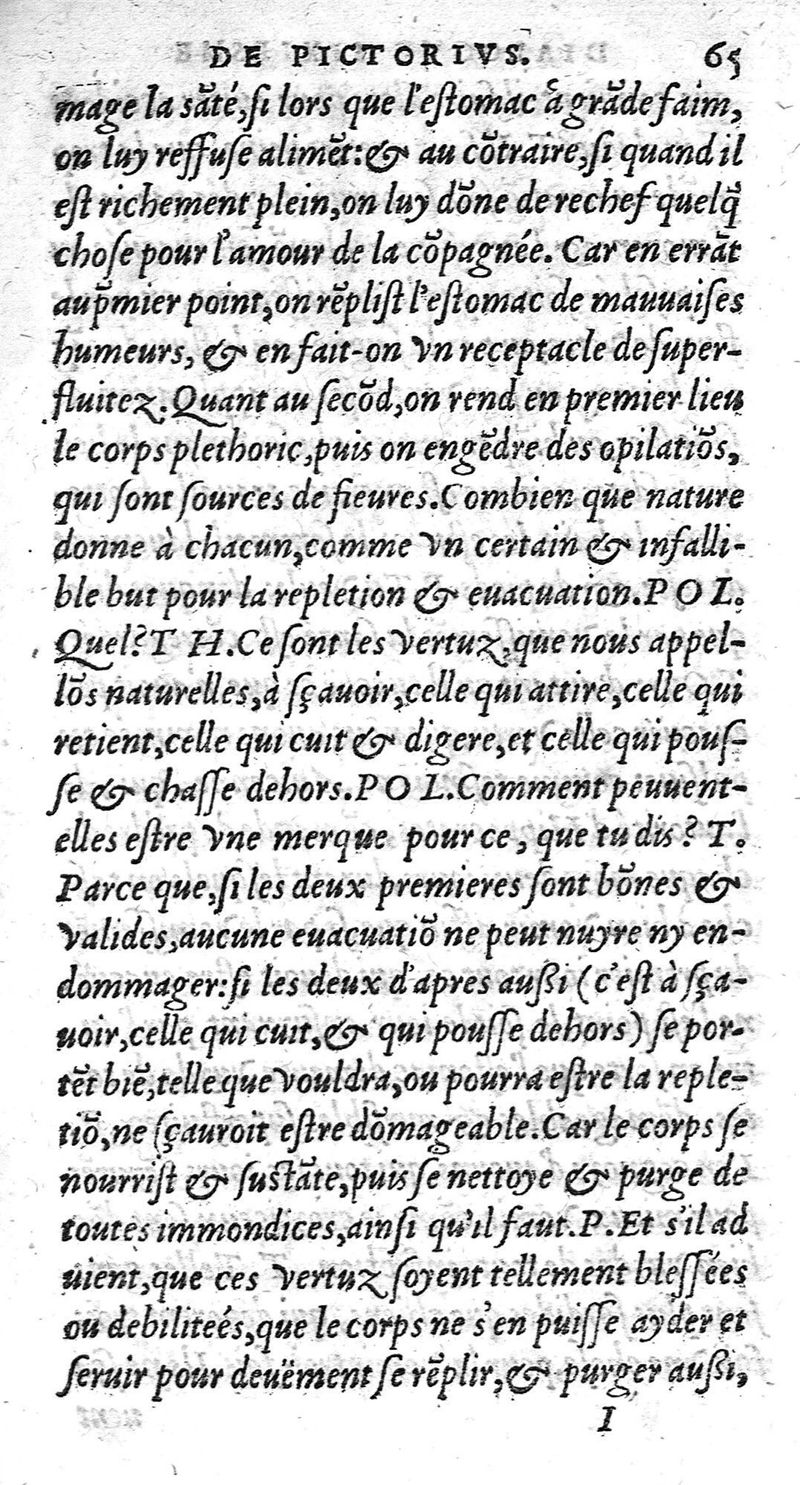 DE PICTORIVS. 65
mage la sãté,ſi lors que l'eſtomac à grãde faim,
on luy reffuſe alimẽt:& au cõtraire,ſi quand il
eſt richement plein,on luy dõne de rechef quelq̃
choſe pour l'amour de la cõpagnée. Car en errãt
au p̃mier point,on rẽpliſt l'eſtomac de mauuaiſes
humeurs, & en fait-on vn receptacle de ſuper-
fluitez.Quant au ſecõd,on rend en premier lieu
le corps plethoric,puis on engẽdre des opilatiõs,
qui ſont ſources de fieures.Combien que nature
donne à chacun,comme vn certain & infalli-
ble but pour la repletion & euacuation.P O L.
Quel?T H.Ce ſont les vertuz,que nous appel-
lõs naturelles,à ſçauoir,celle qui attire,celle qui
retient,celle qui cuit & digere,et celle qui pouſ-
ſe & chaſſe dehors.P O L.Comment peuuent-
elles eſtre vne merque pour ce, que tu dis? T.
Parce que,ſi les deux premieres ſont bõnes &
valides,aucune euacuatiõ ne peut nuyre ny en-
dommager:ſi les deux d'apres auſſi (c'eſt à ſça-
uoir,celle qui cuit,& qui pouſſe dehors) ſe por-
tẽt biẽ,telle que vouldra,ou pourra eſtre la reple-
tiõ,ne ſçauroit eſtre dõmageable.Car le corps ſe
nourriſt & ſuſtãte,puis ſe nettoye & purge de
toutes immondices,ainſi qu'il faut.P.Et s'il ad
uient,que ces vertuz ſoyent tellement bleſſées
ou debiliteés,que le corps ne s'en puiſſe ayder et
ſeruir pour deuëment ſe rẽplir,& purger auſſi,
I